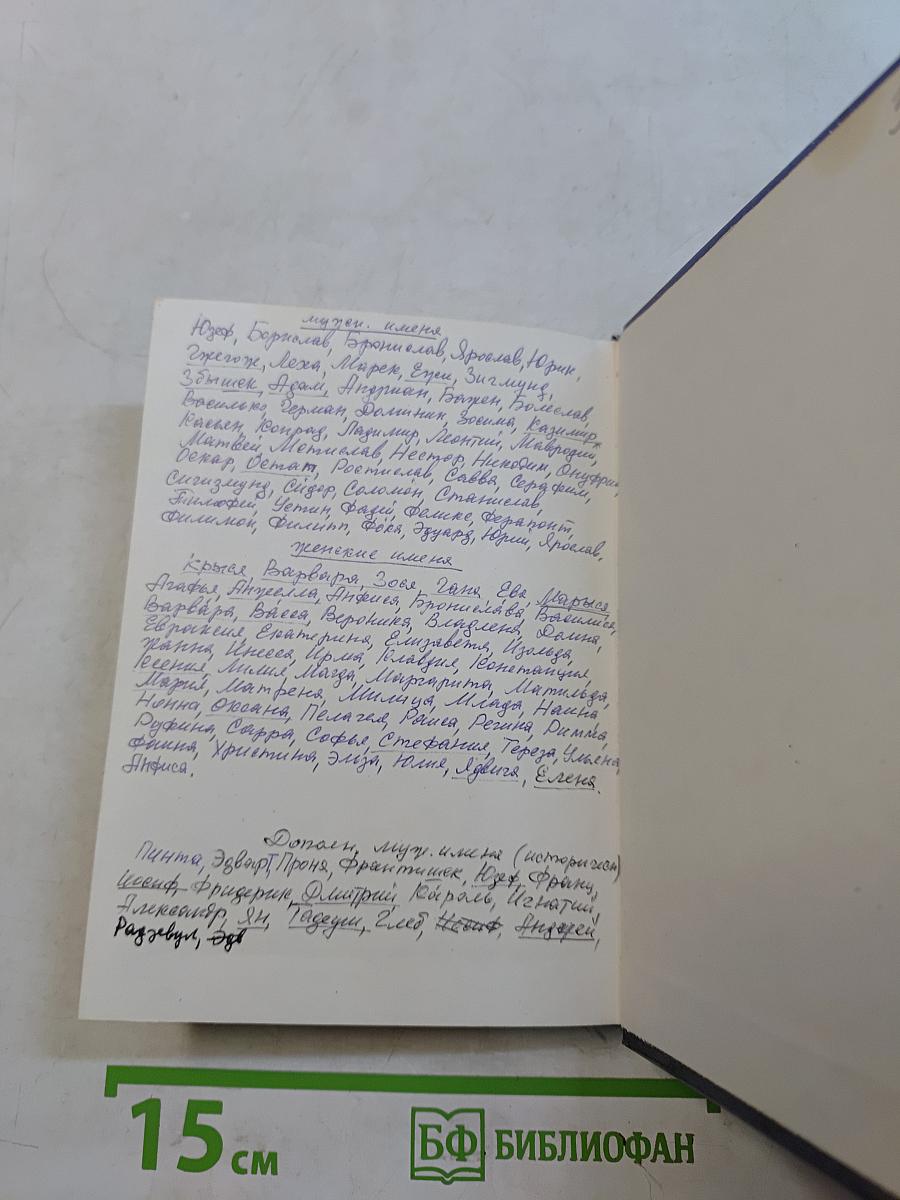 мужск. имена
Юзеф, Борислав, Бронислав, Ярослав, Юрик,
Гжегож, Леха, Марек, Ежи, Зигмунд,
Збышек, Адам, Андриан, Бажен, Болеслав,
Василько, Герман, Доминик, Зосима, Казимир,
Касьян, Конрад, Ладимир, Леонтий, Мавродий,
Матвей, Мстислав, Нестор, Никодим, Онуфрий
Оскар, Остап, Ростислав, Савва, Серафим,
Сигизмунд, Сидор, Соломон, Станислав,
Тимофей, Устин, Фадей, Феликс, Ферапонт,
Филимон, Филипп, Фока, Эдуард, Юрий, Ярослав,
женские имена
Крыся, Варвара, Зося, Гана, Ева, Марыся,
Агафья, Анжелла, Анфиса, Бронислава, Василиса,
Варвара, Васса, Вероника, Владлена, Домна,
Евраксия, Екатерина, Елизавета, Изольда,
Жанна, Инесса, Ирма, Клавдия, Констанция,
Ксения, Лилия, Магда, Маргарита, Матильда,
Мария, Матрена, Милица, Млада, Наина
Нонна, Оксана, Пелагея, Раиса, Регина, Римма,
Руфина, Сарра, Софья, Стефания, Тереза, Ульяна,
Фаина, Христина, Эльза, Юлия, Ядвига, Елена.
Анфиса.
Дополн. муж. имена (историческ)
Пинта, Эдварт, Проня, Франтишек, Юзеф, Франц,
Иосиф, Фридерик, Дмитрий, Кароль, Игнатий,
Александр, Ян, Тадеуш, Глеб, Иосиф, Андрей,
Радзевул, Эдв
15 см
БФ БИБЛИОФАН